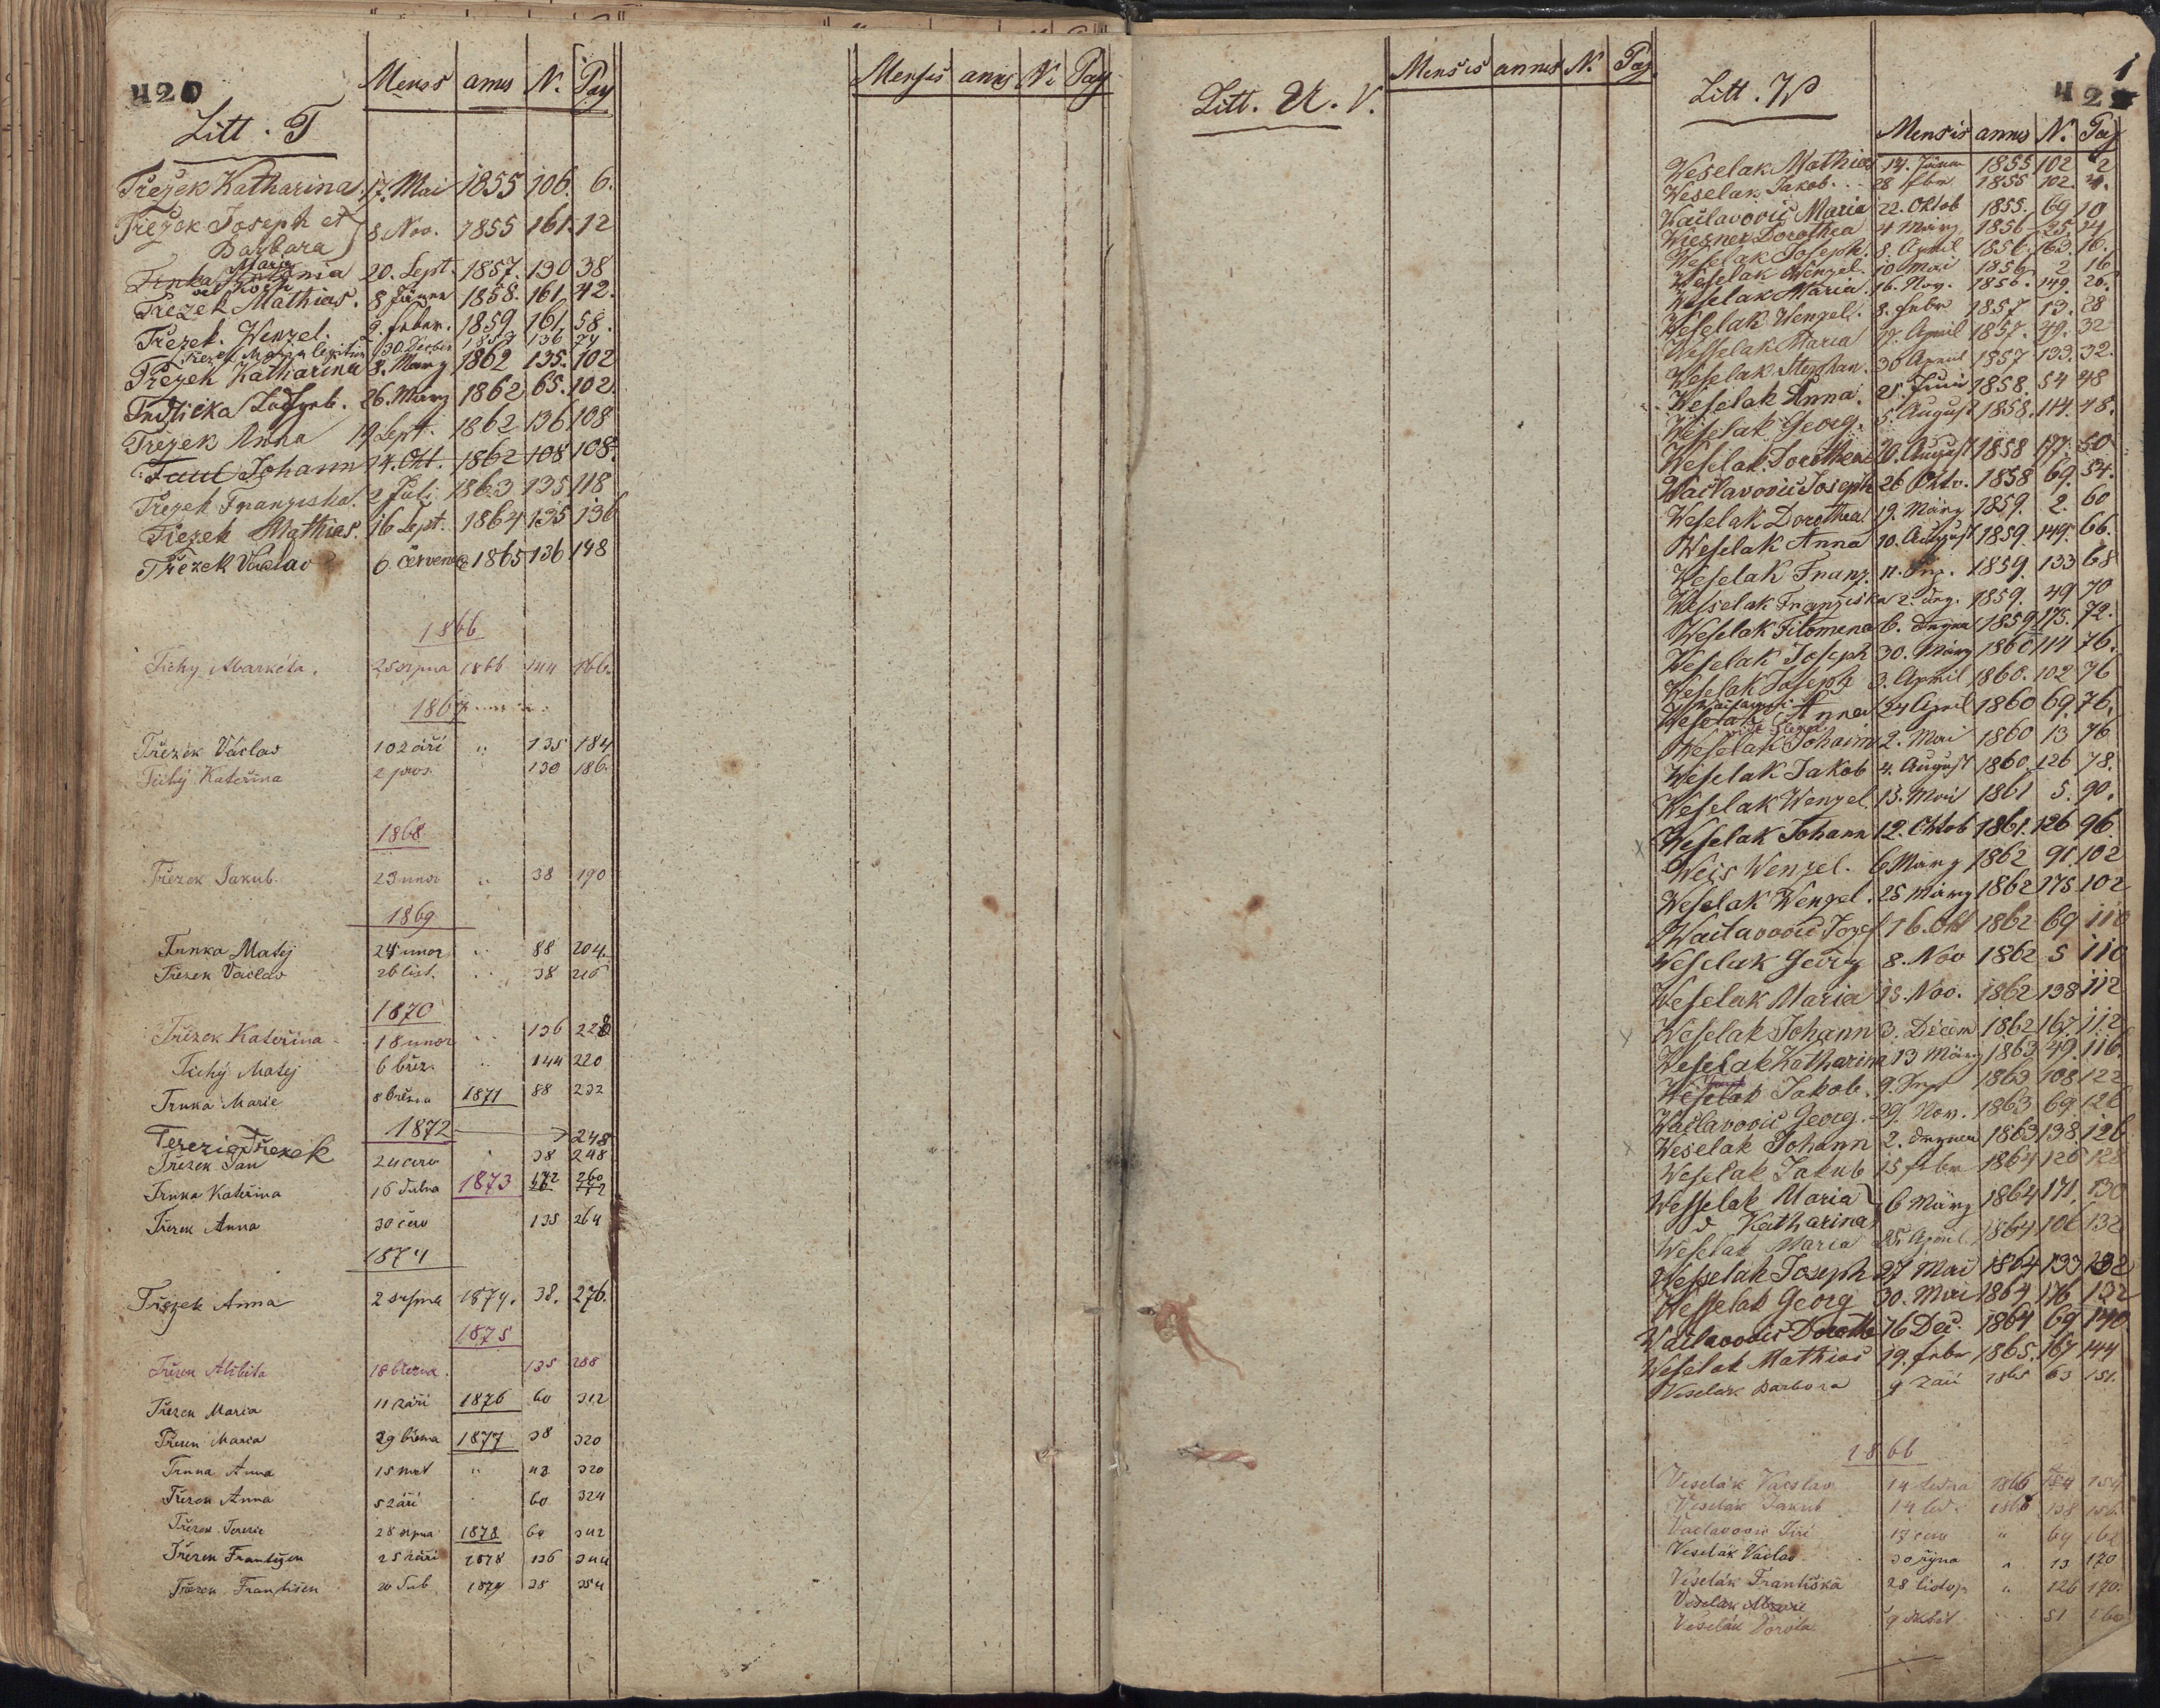 420
Mensis annus N. Pag
Litt. T
Třezek Katharina 17. Mai 1855 106. 6.
Třezek Joseph et 8. Nov. 1855 161. 12
Barbara
Maria
Trnka Antonia 20. Sept. 1857. 130 38
Třezek Mathias. 8 Jänner 1858. 161. 42.
Třezek. Wenzel. 9. feber. 1859 161. 58.
Třezek Katharina 8. März 1862 135. 102
26. März 1862 65. 102.
Třezek Anna 19 Sept. 1862 136 108
Johann 14. Okt. 1862 108 108.
Třezek Franziska. 2 Juli 1863 135 118
Třezek Mathias. 16 Sept. 1864 135 136
Třezek Václav 6. července 1865 136 148
1866
Tichy Markéta. 25 srpna 1866 144 166.
1867
Třezek Václav 10 září " 135 184
Tichý Kateřina 2 pros. 130 186.
1868
Třezek Jakub. 23 unor " 38 190
1869
Trnka Matěj 24 unor " 88 204.
Třezek Vaclav 26 list. " 38 216
1870
Třezek Kateřina 18 unor " 136 228
Tichý Matěj 6 břez. " 144 220
Trnka Marie 8 března 1871 88 232
1872 248
Terezie Třezek
Třezek Jan 38 248
Trnka Kateřina 16 dubna 1873 260
Třezek Anna 30 červ 135 264
1874
Třezek Anna 2 srpna 1874. 38. 276.
1875
Třezek Alžběta 18 března. 135 288
Třezek Maria 11 září 1876 60 312
Třezek Maria 29 března 1877 38 320
Trnka Anna 15 " 320
Třezek Anna 5 září 60 324
Třezek Terezie 28 srpna 1878 60 342
Třezek František 25 září 1878 136 344
Třezek František 20 dub. 1879 38 354
Mensis annus N. Pag
Litt. U. V.
Mensis annus N. Pag.
Litt. W
421
Mensis annus N. Pag
Weselak Mathias 14. Jänner 1855 102 2
Weselak Jakob. 28 febr 1855 102. 4.
Wačlavovič Maria 22. Oktob 1855. 69 10
Wiesner Dorothea 4 März 1856 25. 14
Weselak Joseph. 8. April 1856. 163. 16.
Weselak Wenzel. 10 Mai 1856 2 16
Weselak Maria. 16. Nov. 1856. 149. 26.
Weselak Wenzel. 8. febr 1857 13. 28
Wesselak Maria 17. April 1857. 49. 32
Weselak Stephan. 30 April 1857 133. 32.
Weselak Anna. 21. Juni 1858. 54 48
Weselak Georg. 5. August 1858. 114. 48.
Weselak Dorothea 20. August 1858 177. 50
Wačlavovič Joseph 26 Okto. 1858 69. 54.
Weselak Dorothea 19. März 1859. 2. 60
Weselak Anna 10. August 1859. 149. 66.
Weselak Franz. 1859. 133 68
Weselak Franziska 1859. 49 70
Weselak Filomena 6. 1859 175. 72.
Weselak Joseph 30. März 1860 114 76.
Weselak Joseph 3. April 1860. 102 76
Anna 24 April 1860 69. 76.
Weselak Johann 2. Mai 1860 13 76
Weselak Jakob 4. August 1860. 126 78.
Weselak Wenzel 15. Mai 1861 5. 90.
Weselak Johann 12. Oktob 1861. 126 96.
Weis Wenzel. 6 März 1862 91. 102
Weselak Wenzel. 25 März 1862 175 102
Wačlavovič Jozef 16. Okt 1862 69 110
Weselak Georg 8. Nov 1862 5 110
Weselak Maria 13. Nov. 1862 138 112
Weselak Johann 3. Decem 1862 167. 112
Weselak Katharina 13 März 1863 49. 116.
Weselak Jakob. 9. 1863 108 122
Wačlavovič Georg. 29. Nov. 1863 69. 126
Weselak Johann 2. 1863 138. 126
Weselak Jakub 15 febr 1864 126 128
Wesselak Maria 6 März 1864 171. 130
Katharina
Weselak Maria 25 April 1864 106 132
Wesselak Joseph 27 Mai 1864 133 132
Wesselak Georg 30. Mai 1864 176 132
Wačlavovič Doroth 16 Dec. 1864 69 140
Weselak Mathias 19. febr 1865. 167 144
Veselak Barbora 9 září 1865 63 151.
1866
Veselák Vacslav 14 ledna 1866 154
Veselák Jakub 14 led. 1866 138 156.
Vaclavovic Jiří 17 červ " 69 162
Veselák Václav 30 října " 13 170
Veselák Františka 28 listop " 126 170.
Veselák Marie
Veselák Dorota 51 160